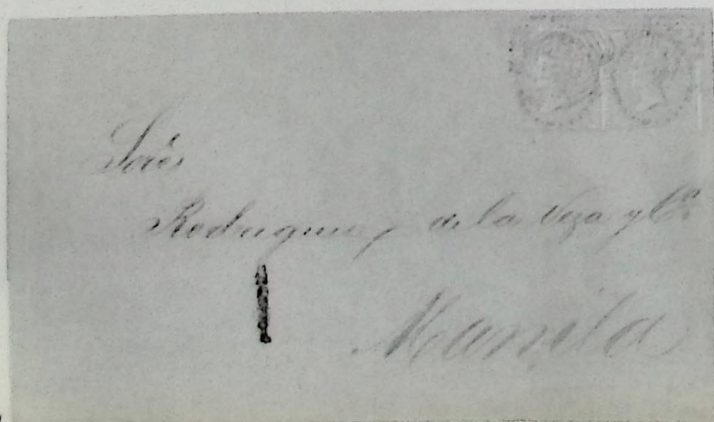 Sres
Rodriguez de la Vega y Ca
Manila